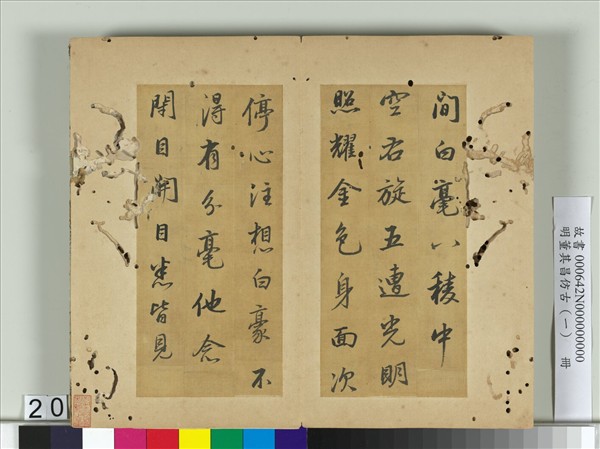 間白毫八稜中
空右旋五遭光明
照耀金色身面次
停心注想白豪不
得有分毫他念
閉目開目悉皆見
故書 000642N000000000
明董其昌仿古（一） 冊
20